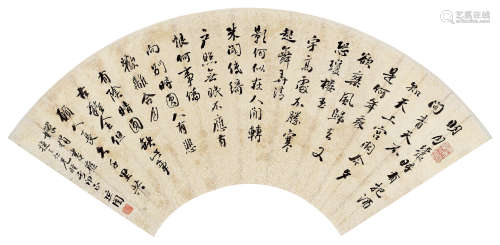 明月幾時有把酒
問青天不
知天上宮闕今夕
是何年
欲乘風歸去又
恐瓊樓玉
宇高處不勝寒
起舞弄清
影何似在人間轉
朱閣低綺
戶照無眠不應有
恨何事偏
向別時圓人有悲
歡離合月
有陰晴圓缺此事
古難全但
願人長久千里共
嬋娟
艺狐在线